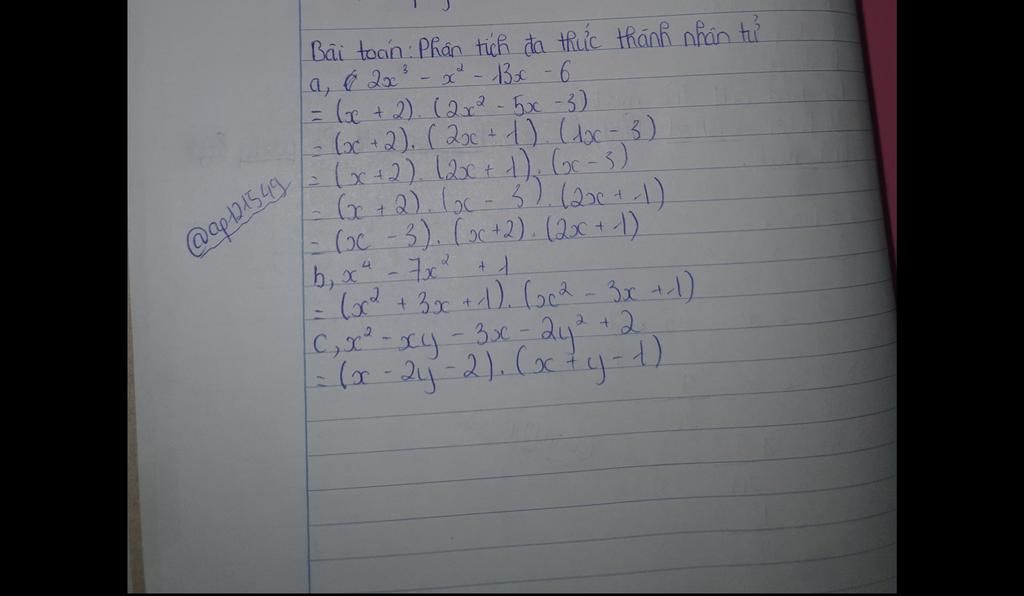 Bài toán: Phân tích đa thức thành nhân tử
a, 2x³ - x² - 13x - 6
= (x + 2). (2x² - 5x - 3)
= (x + 2). (2x + 1). (1x - 3)
= (x + 2). (2x + 1). (x - 3)
= (x + 2). (x - 3). (2x + 1)
= (x - 3). (x + 2). (2x + 1)
b, x⁴ - 7x² + 1
= (x² + 3x + 1). (x² - 3x + 1)
c, x² - xy - 3x - 2y² + 2
= (x - 2y - 2). (x + y - 1)
@ap121549